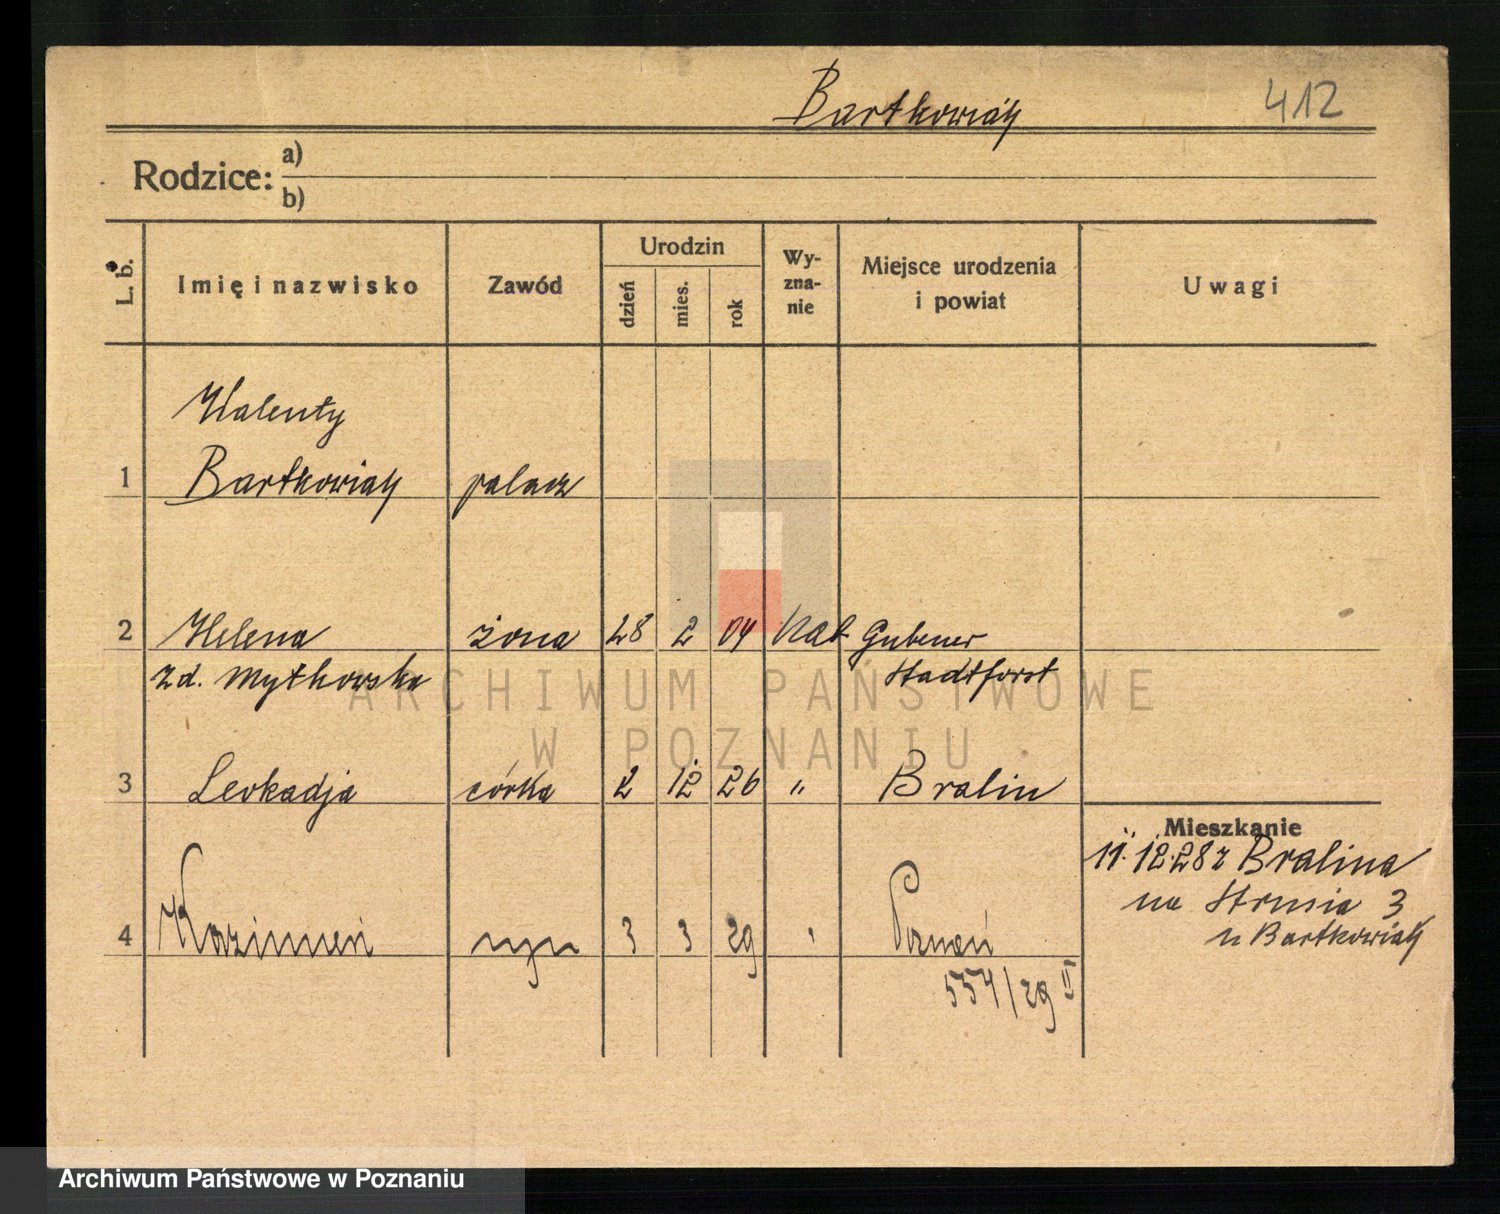 Bartkowiak 412
Rodzice: a)
b)
L. b. Imię i nazwisko Zawód Urodzin dzień mies. rok Wy-zna-nie Miejsce urodzenia i powiat Uwagi
Walenty
1 Bartkowiak palacz
2 Helena żona 28 2 04 kat Gubener
zd. Mytkowska Stadtforst
ARCHIWUM PAŃSTWOWE
W POZNANIU
3 Leokadja córka 2 12 26 " Bralin
Mieszkanie
11.12.28 z Bralina
na Strusia 3
u Bartkowiak
4 Kazimierz syn 3 3 29 " Poznań
554/29 II
Archiwum Państwowe w Poznaniu